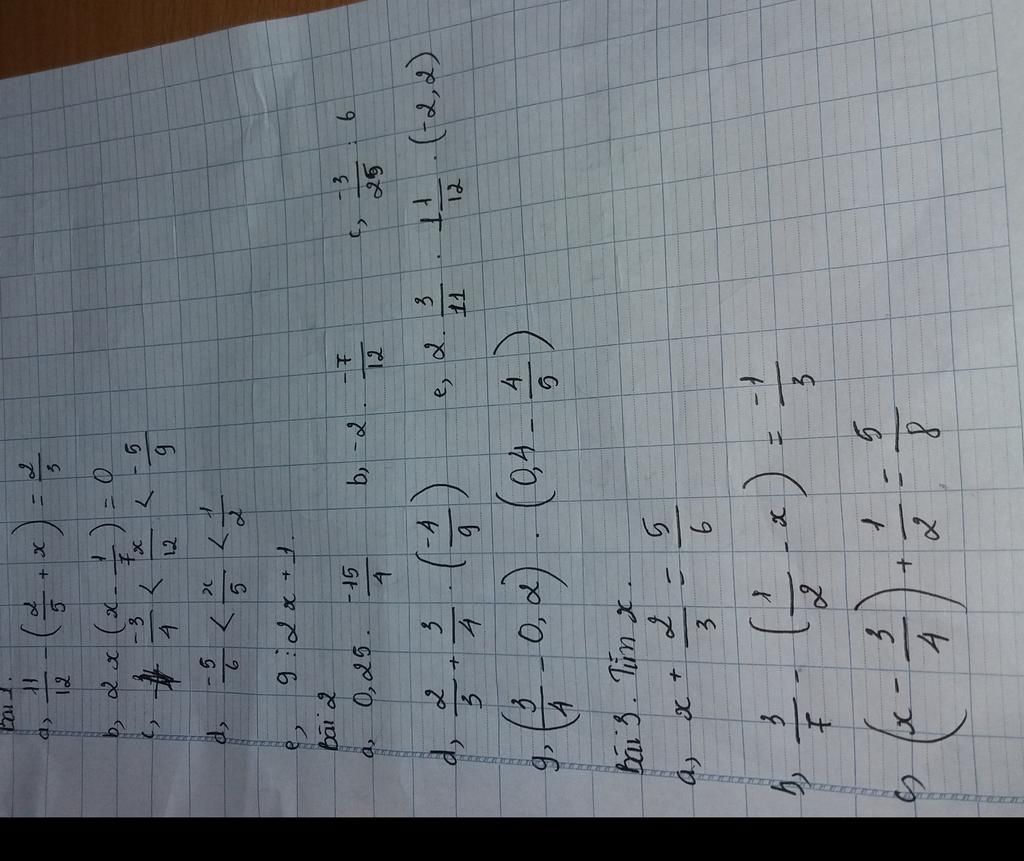 Bài 1.
a, 11/12 - (2/5 + x) = 2/3
b, 2x (x - 1/7) = 0
c, -3/4 < x/12 < -5/9
d, -5/6 < x/5 < 1/2
e, 9 : 2x + 1.
Bài 2
a, 0,25 . -15/4 b, -2 . -7/12 c, -3/25 : 6
d, 2/3 + 3/4 . (-4/9) e, 2 . 3/11 . 1 1/12 . (-2,2)
g, (3/4 - 0,2) . (0,4 - 4/5)
Bài 3. Tìm x.
a, x + 2/3 = 5/6
b, 3/7 - (1/2 - x) = -1/3
c, (x - 3/4) + 1/2 = 5/8